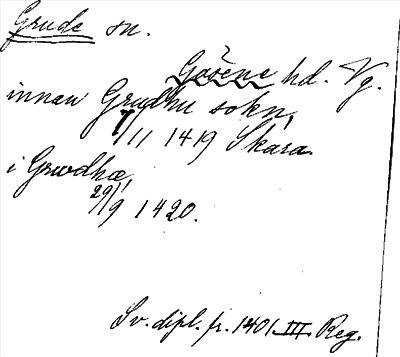 Grude sn.
Gäsene hd. Vg.
innan Grudhu sokn,
7/11 1419 Skara.
i Grwdha,
29/9 1420.
Sv. dipl. fr. 1401 III. Reg.